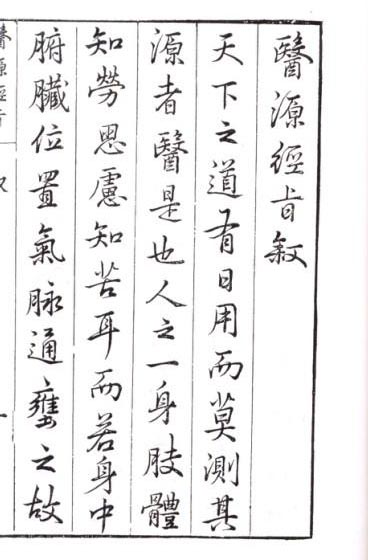 醫源經旨叙
天下之道有日用而莫測其
源者醫是也人之一身肢體
知勞思慮知苦耳而若身中
腑臟位置氣脉通壅之故